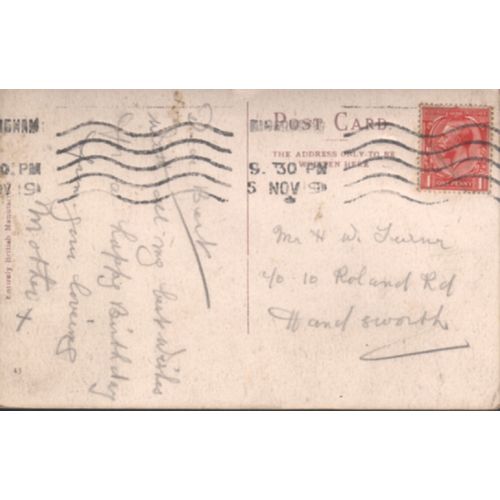 POST CARD.
THE ADDRESS ONLY TO BE
WRITTEN HERE
INGHAM
0. PM
OV 19
9. 30 PM
5 NOV 19
Dear Bert
with all my best wishes
for a happy Birthday
from your loving
Mother x
Mr H W. Turner
c/o 10 Roland Rd
Handsworth
Entirely British Manufac
43
1 1